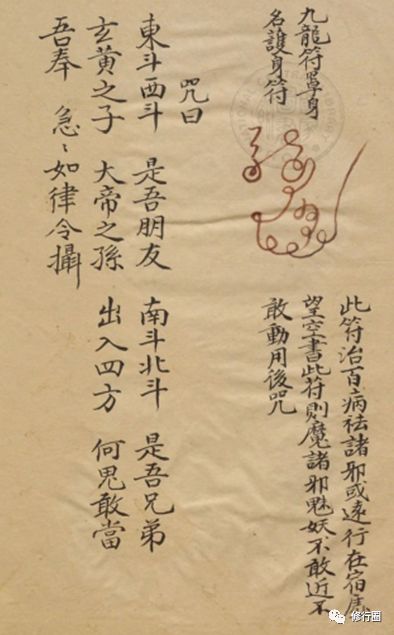 九龍符罩身
名護身符
此符治百病祛諸邪或遠行在宿
望空書此符則魔諸邪魅妖不敢近不
敢動用後咒
咒曰
東斗西斗 是吾朋友 南斗北斗 是吾兄弟
玄黃之子 大帝之孫 出入四方 何鬼敢當
吾奉 急〻如律令攝
修行圈